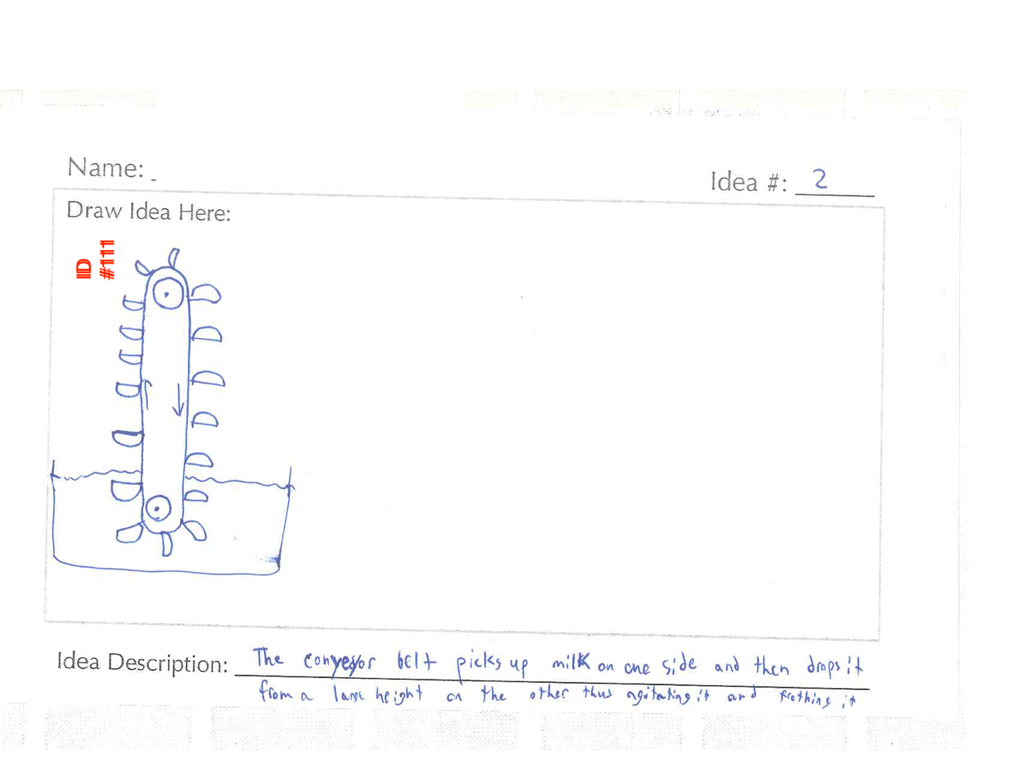 Name:
Idea #: 2
Draw Idea Here:
ID
#111
Idea Description: The conveyor belt picks up milk on one side and then drops it
from a large height on the other thus agitating it and frothing it